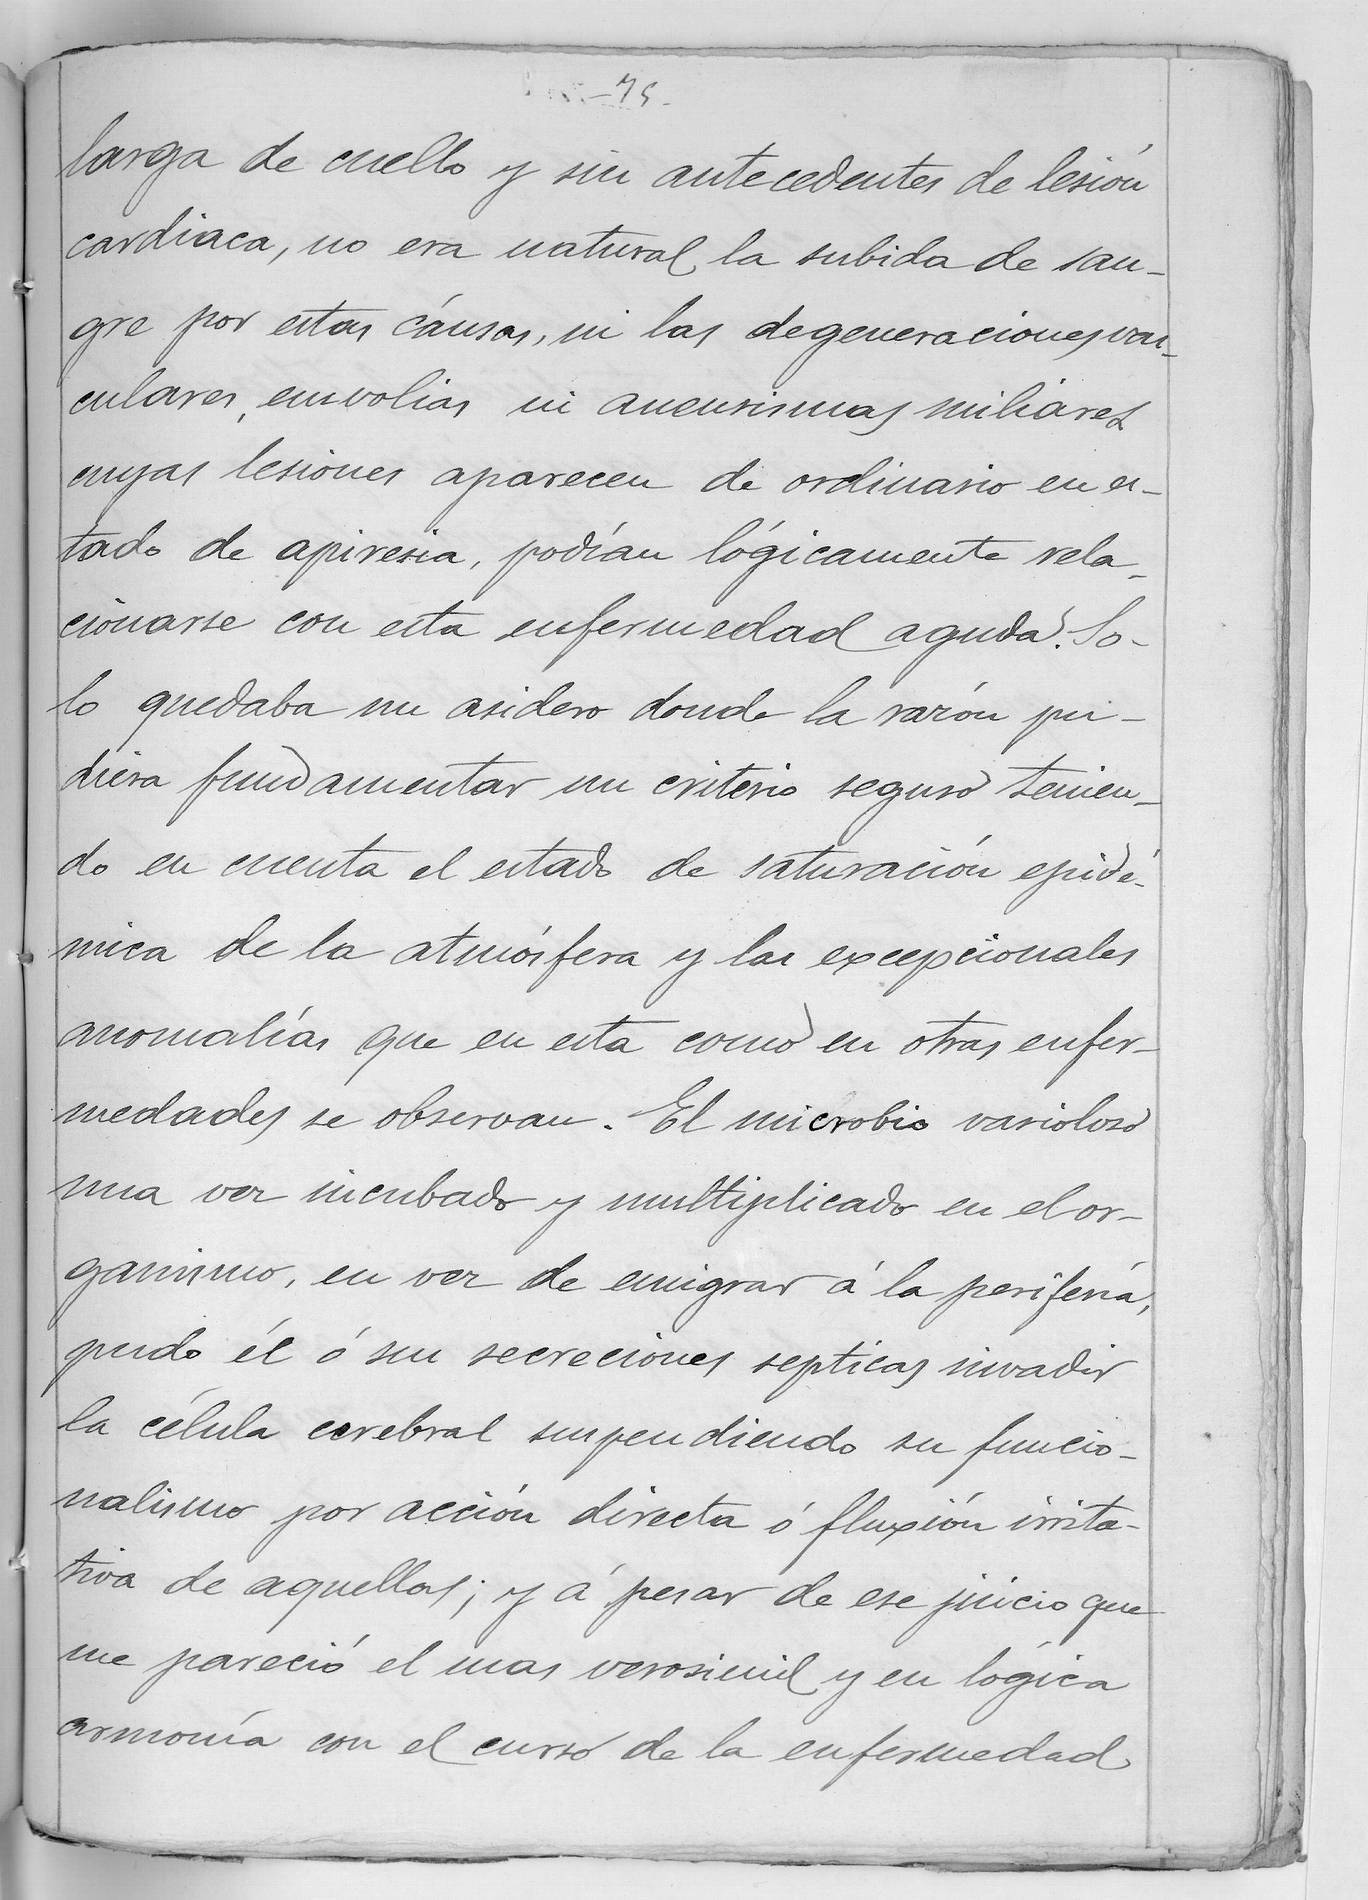 -75-
larga de cuello y sin antecedentes de lesión
cardiaca, no era natural la subida de san-
gre por estas cáusas, ni las degeneraciones vas-
culares, emvolias ni aneurismas miliares
cuyas lesiones aparecen de ordinario en es-
tado de apiresia, podían lógicamente rela-
cionarse con esta enfermedad aguda. So-
lo quedaba un asidero donde la razón pu-
diera fundamentar un criterio seguro tenien-
do en cuenta el estado de saturación epidé-
mica de la atmósfera y las excepcionales
anomalías que en esta como en otras enfer-
medades se observan. El microbio varioloso
una vez incubado y multiplicado en el or-
ganismo, en vez de emigrar á la periferia,
pudo él ó sus secreciones septicas invadir
la célula cerebral suspendiendo su funcio-
nalismo por acción directa ó fluxión irrita-
tiva de aquellas; y á pesar de ese juicio que
me pareció el mas verosimil y en lógica
armonía con el curso de la enfermedad